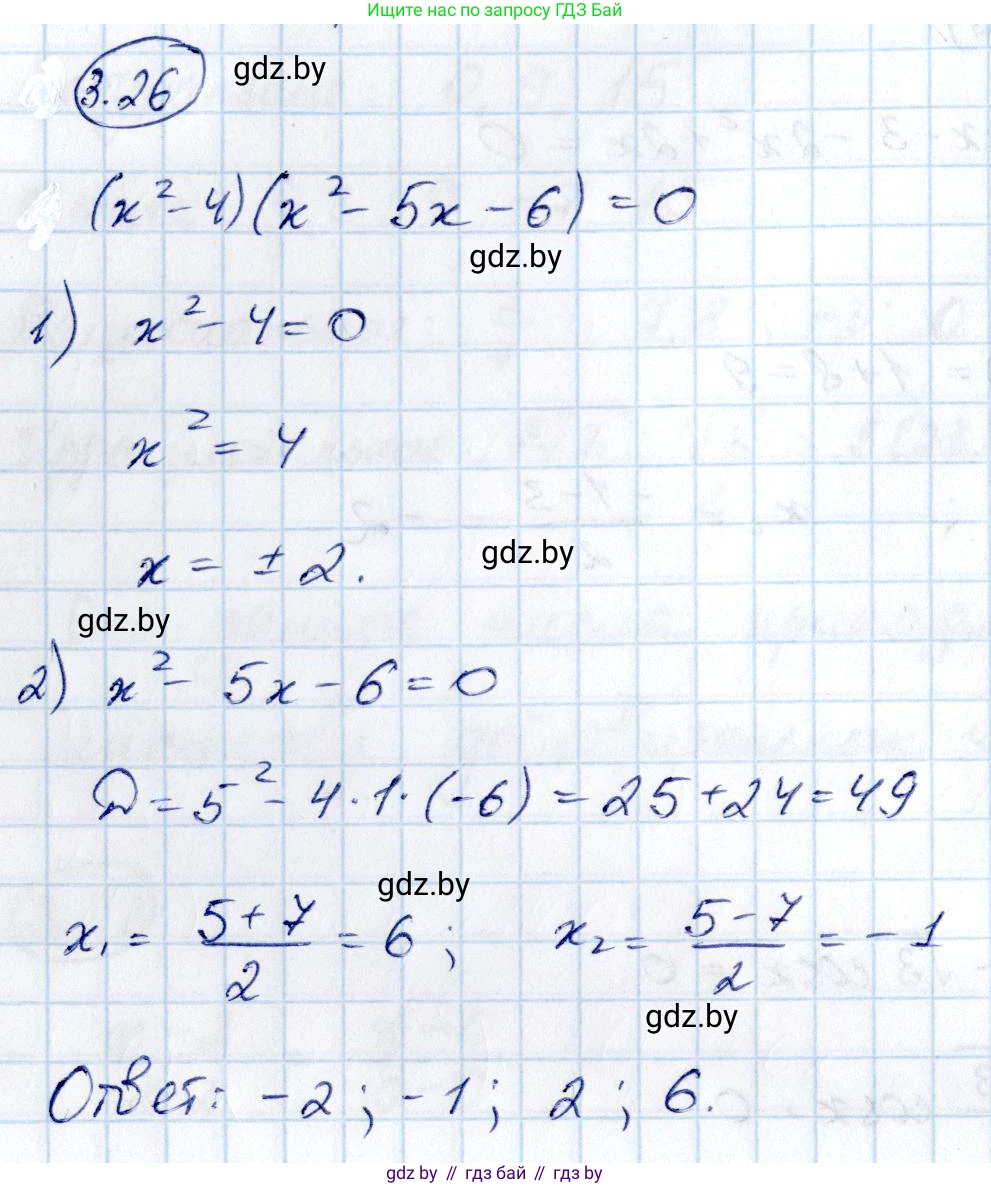 Ищите нас по запросу ГДЗ Бай
3.26 gdz.by
(x² - 4)(x² - 5x - 6) = 0
gdz.by
1) x² - 4 = 0
x² = 4
x = ± 2. gdz.by
gdz.by
2) x² - 5x - 6 = 0
D = 5² - 4·1·(-6) = 25 + 24 = 49
gdz.by
x₁ = (5+7)/2 = 6 ; x₂ = (5-7)/2 = -1
gdz.by
Ответ: -2 ; -1 ; 2 ; 6.
gdz.by // гдз бай // гдз by